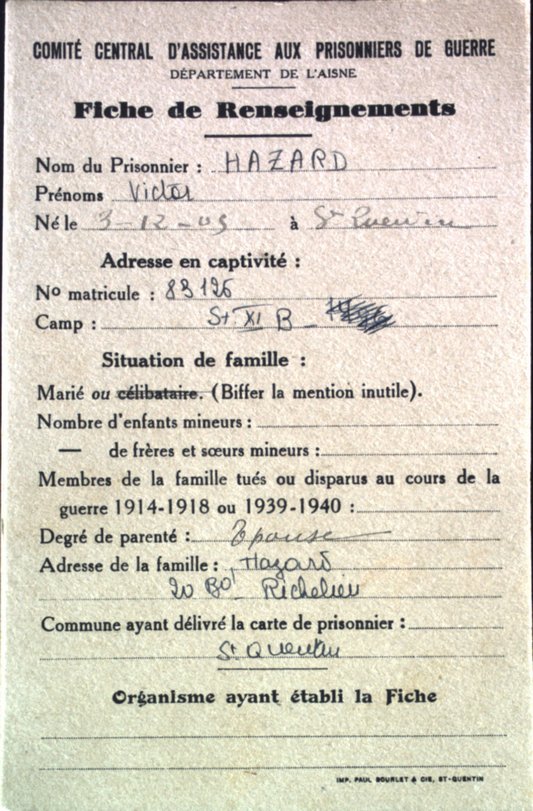 COMITÉ CENTRAL D'ASSISTANCE AUX PRISONNIERS DE GUERRE
DÉPARTEMENT DE L'AISNE
Fiche de Renseignements
Nom du Prisonnier : HAZARD
Prénoms Victor
Né le 3-12-09 à St Quentin
Adresse en captivité :
No matricule : 83126
Camp : St XI B
Situation de famille :
Marié ou célibataire. (Biffer la mention inutile).
Nombre d'enfants mineurs :
— de frères et sœurs mineurs :
Membres de la famille tués ou disparus au cours de la
guerre 1914-1918 ou 1939-1940 :
Degré de parenté : Epouse
Adresse de la famille : Hazard
20 Bd Richelieu
Commune ayant délivré la carte de prisonnier :
St Quentin
Organisme ayant établi la Fiche
IMP. PAUL BOURLET & CIE, ST-QUENTIN